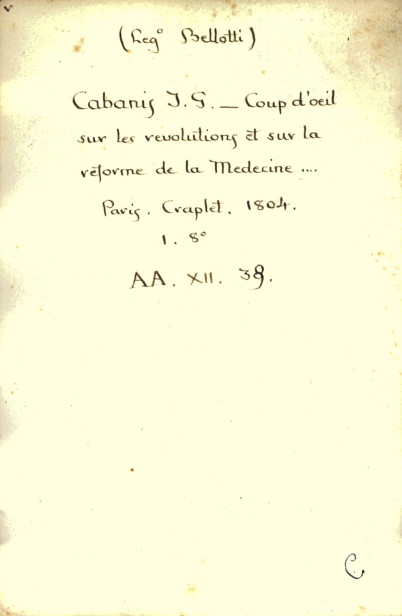 (Leg° Bellotti)
Cabanis J. G. — Coup d'oeil
sur les revolutions et sur la
réforme de la Medecine ....
Paris. Craplet. 1804.
1. 8°
AA. XII. 38.
C